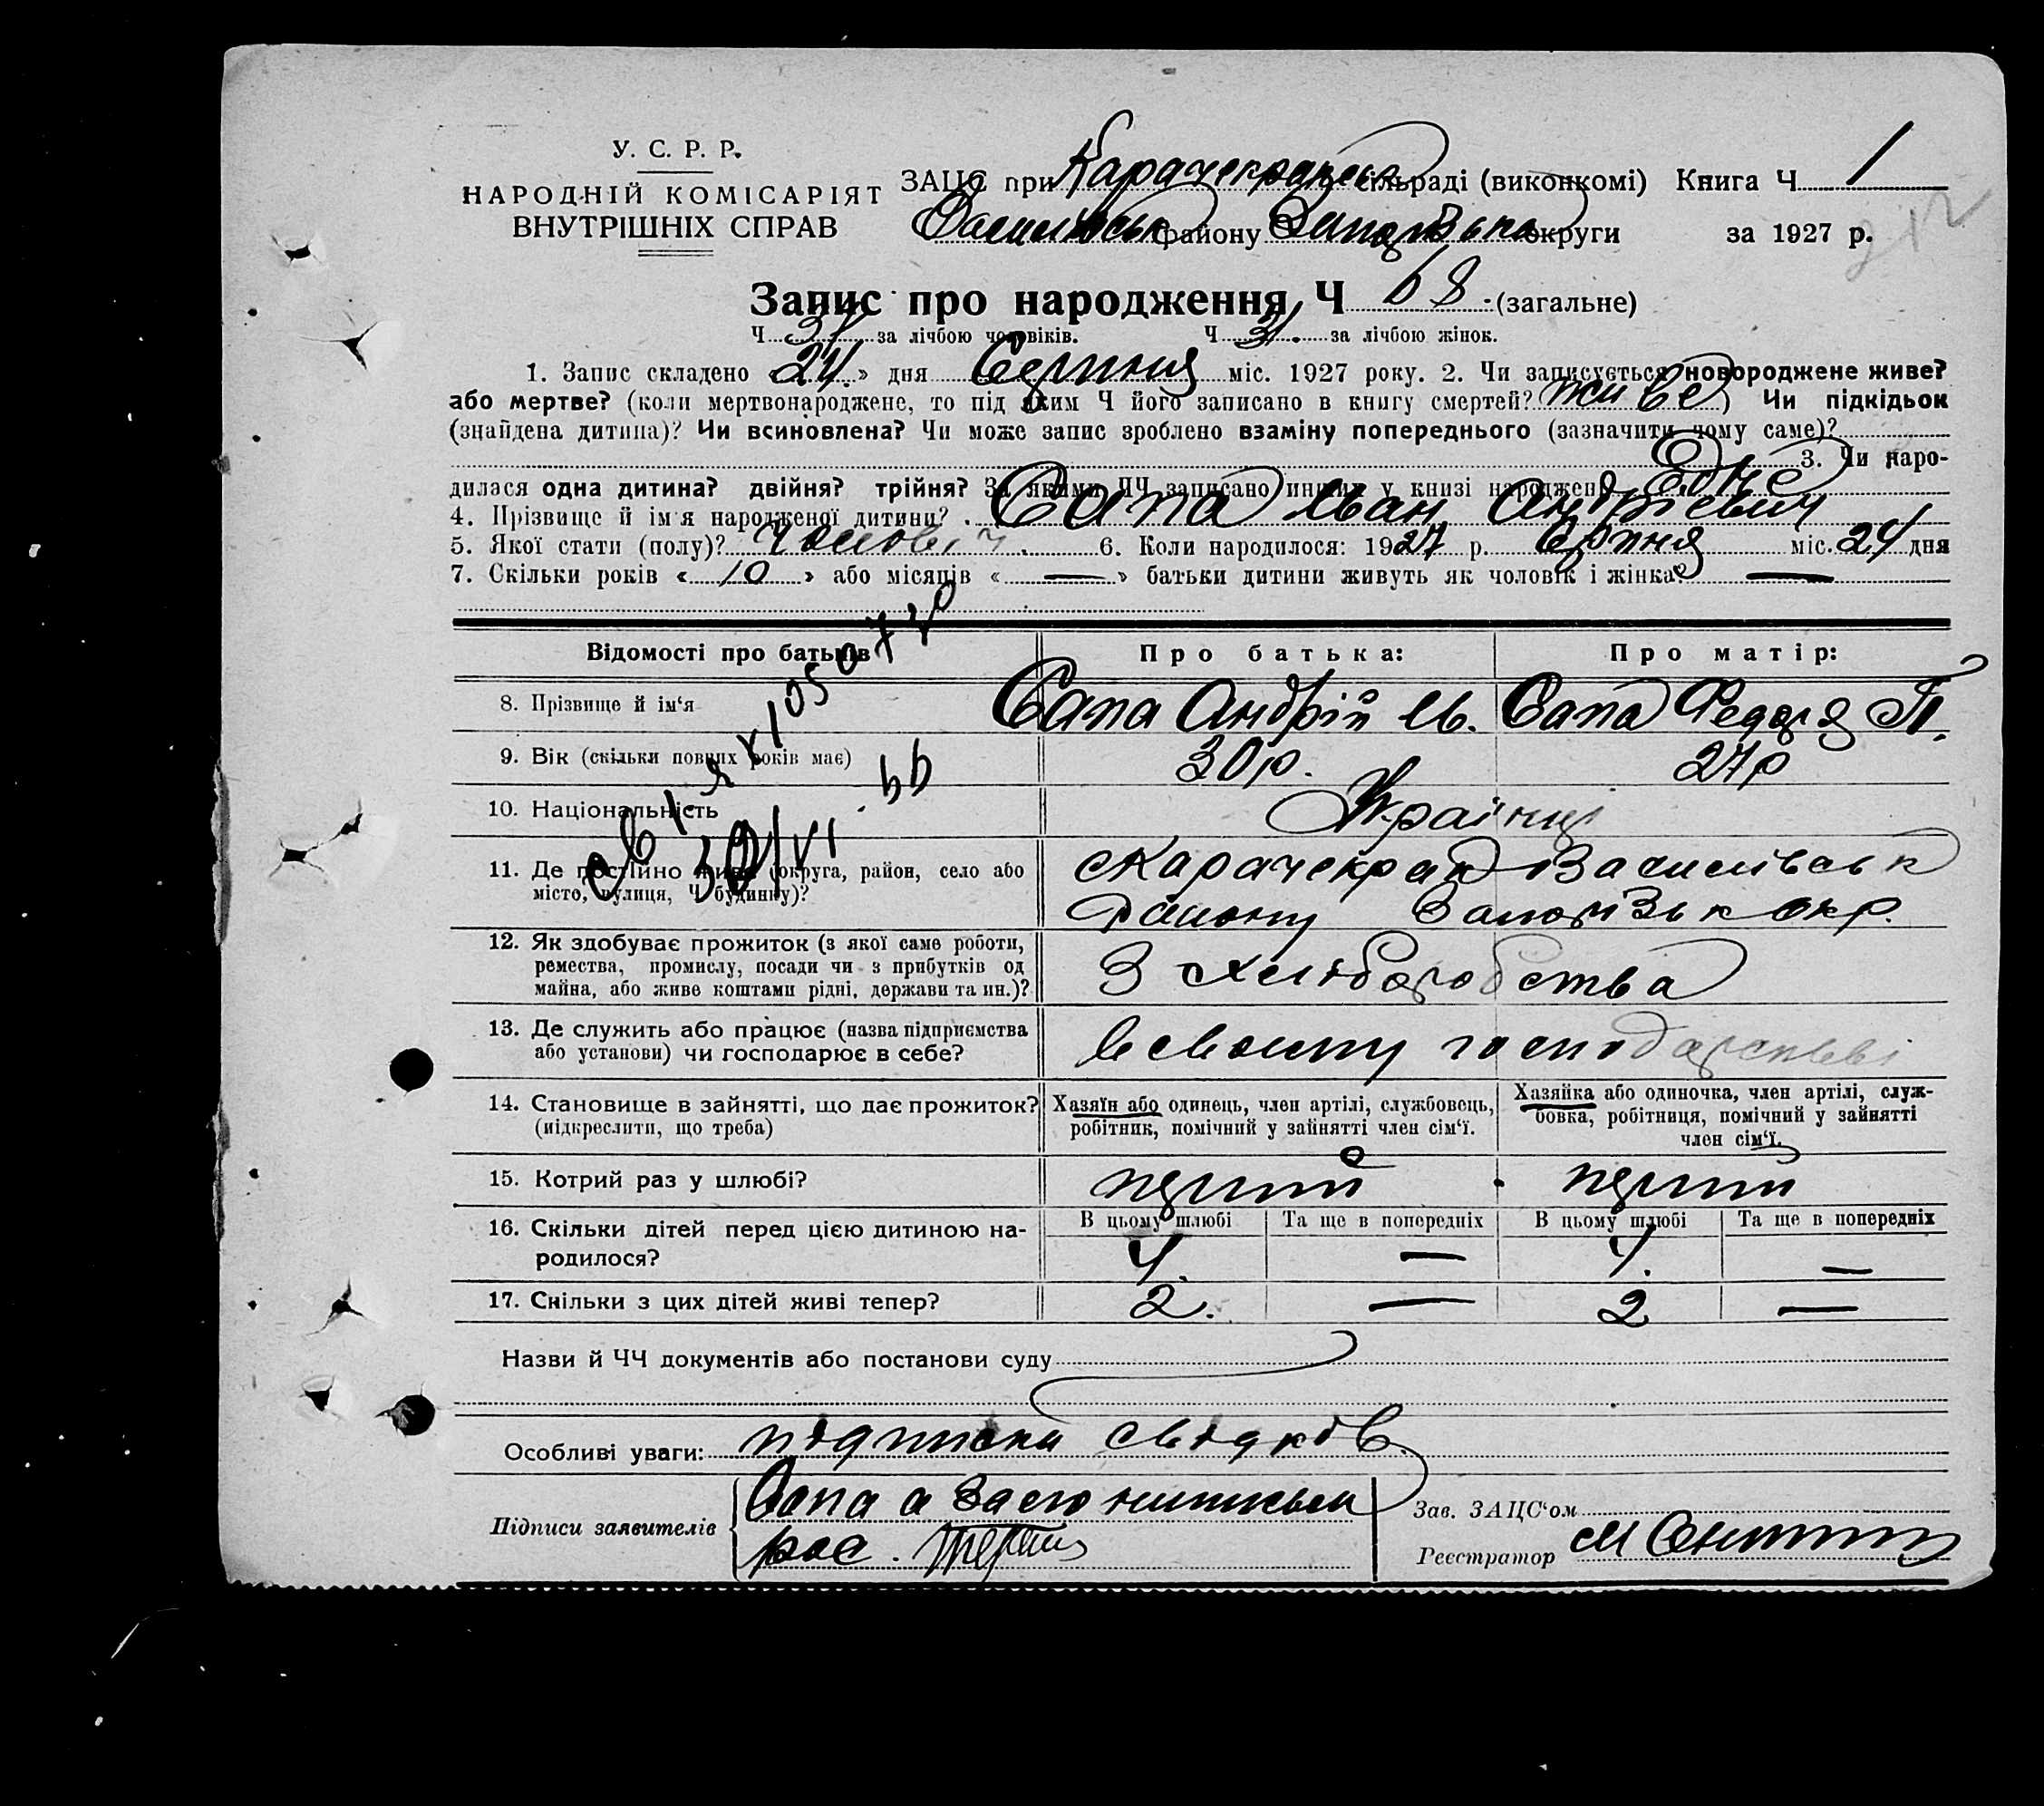 У. С. Р. Р.
НАРОДНІЙ КОМІСАРІЯТ
ВНУТРІШНІХ СПРАВ
ЗАЦС при Карачекракськ сільраді (виконкомі) Книга Ч 1
Василівськ району Запорізька округи за 1927 р.
Запис про народження, Ч 68 (загальне)
Ч за лічбою чоловіків. Ч за лічбою жінок.
1. Запис складено «24» дня Серпня міс. 1927 року. 2. Чи записується новороджене живе?
або мертве? (коли мертвонароджене, то під яким Ч його записано в книгу смертей? живе) Чи підкідьок
(знайдена дитина)? Чи всиновлена? Чи може запис зроблено взаміну попереднього (зазначити чому саме)?
3. Чи наро-
дилася одна дитина? двійня? трійня? За якими ЧЧ записано инших у книзі народжень Одне
4. Прізвище й ім'я народженої дитини? Сапа Іван Андрієвич
5. Якої стати (полу)? Чоловіч 6. Коли народилося: 1927 р. Серпня міс. 24 дня
7. Скільки років «10» або місяців «—» батьки дитини живуть як чоловік і жінка? —
Відомості про батьків
Про батька:
Про матір:
8. Прізвище й ім'я Сапа Андрій Ів. Сапа Федора П.
9. Вік (скільки повних років має) 30 р. 27 р
10. Національність Українці
11. Де постійно живе (округа, район, село або
місто, вулиця, Ч будинку)?
Карачекрак Василівськ
району Запорізьк окр.
12. Як здобуває прожиток (з якої саме роботи,
ремества, промислу, посади чи з прибутків од
майна, або живе коштами рідні, держави та ин.)?
З хліборобства
13. Де служить або працює (назва підприємства
або установи) чи господарює в себе?
в своєму господарстві
14. Становище в зайнятті, що дає прожиток?
(підкреслити, що треба)
Хазяїн або одинець, член артілі, службовець,
робітник, помічний у зайнятті член сім'ї.
Хазяйка або одиночка, член артілі, служ-
бовка, робітниця, помічний у зайнятті
член сім'ї.
15. Котрий раз у шлюбі? перший перший
16. Скільки дітей перед цією дитиною на-
родилося?
В цьому шлюбі Та ще в попередніх В цьому шлюбі Та ще в попередніх
4. — 4. —
17. Скільки з цих дітей живі тепер? 2. — 2 —
Назви й ЧЧ документів або постанови суду
Особливі уваги: підписки свідків
Підписи заявителів
Сапа а за его
рас.
Зав. ЗАЦС'ом
Реєстратор